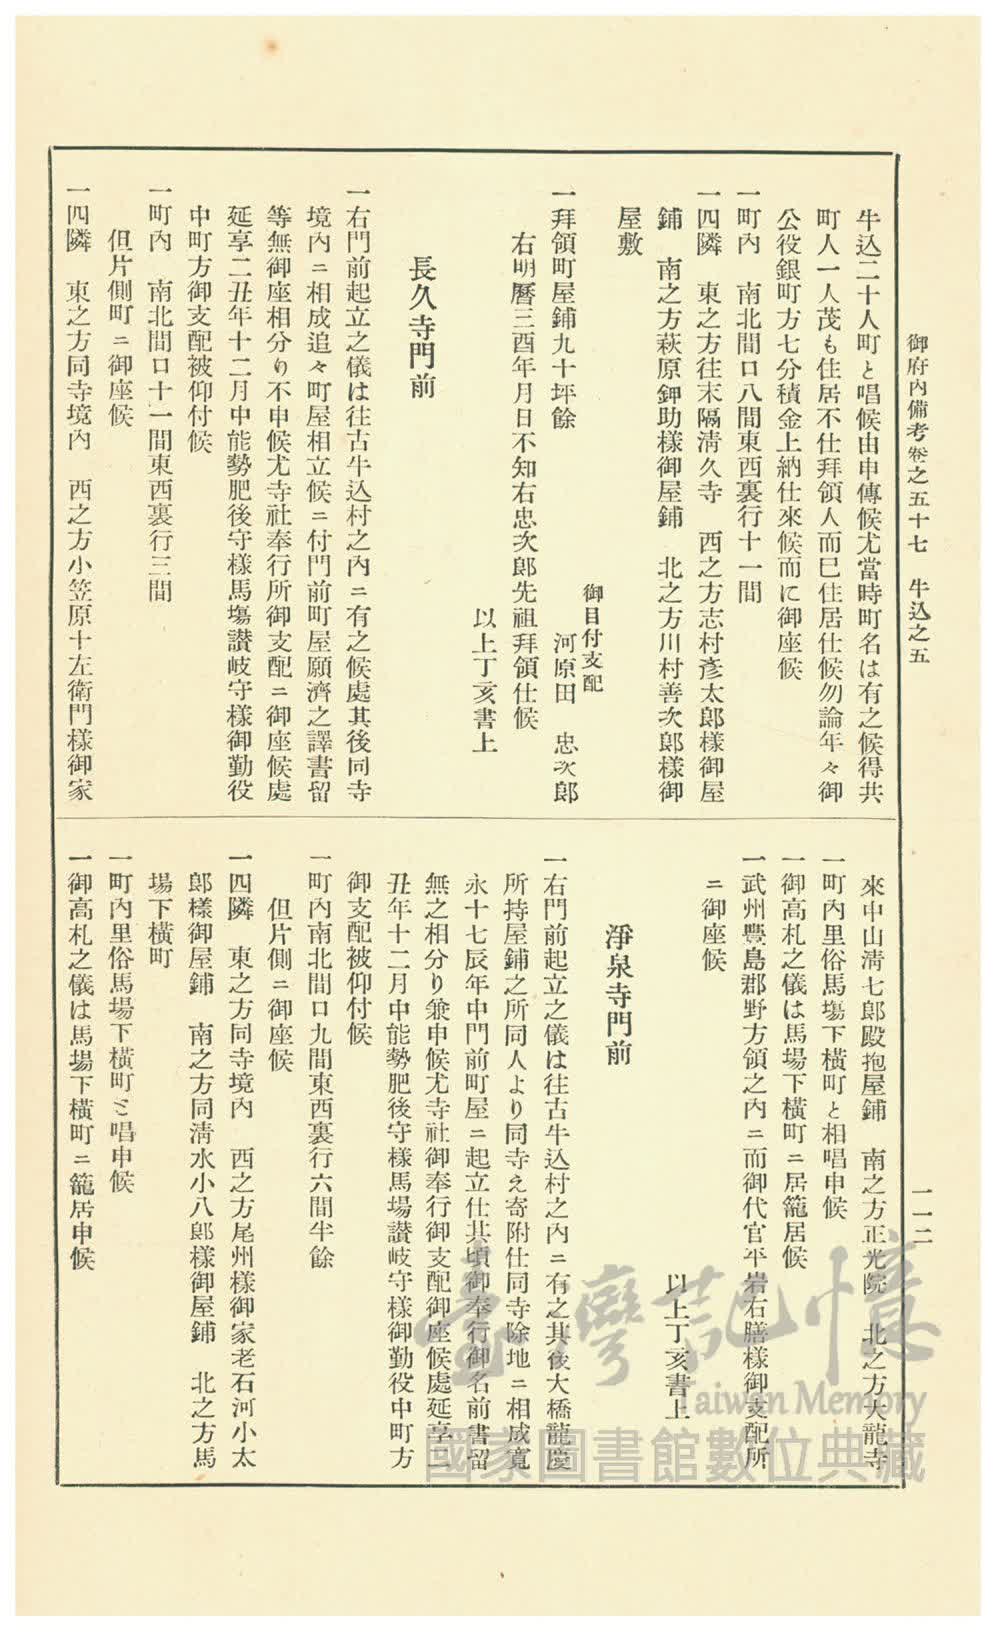 御府內備考卷之五十七　牛込之五
一一二
牛込二十人町と唱候由申傳候尤當時町名は有之候得共
町人一人茂も住居不仕拜領人而巳住居仕候勿論年々御
公役銀町方七分積金上納仕來候而に御座候
一町內　南北間口八間東西裏行十一間
一四隣　東之方往末隔淸久寺　西之方志村彥太郞樣御屋
鋪　南之方萩原鉀助樣御屋鋪　北之方川村善次郞樣御
屋敷
御目付支配
一拜領町屋鋪九十坪餘　河原田　忠次郞
右明曆三酉年月日不知右忠次郞先祖拜領仕候
以上丁亥書上
長久寺門前
一右門前起立之儀は往古牛込村之內ニ有之候處其後同寺
境內ニ相成追々町屋相立候ニ付門前町屋願濟之譯書留
等無御座相分り不申候尤寺社奉行所御支配ニ御座候處
延享二丑年十二月中能勢肥後守樣馬塲讃岐守樣御勤役
中町方御支配被仰付候
一町內　南北間口十一間東西裏行三間
但片側町ニ御座候
一四隣　東之方同寺境內　西之方小笠原十左衞門樣御家
來中山淸七郞殿抱屋鋪　南之方正光院　北之方大龍寺
一町內里俗馬塲下橫町と相唱申候
一御高札之儀は馬塲下橫町ニ居籠居候
一武州豐島郡野方領之內ニ而御代官平岩右膳樣御支配所
ニ御座候
以上丁亥書上
淨泉寺門前
一右門前起立之儀は往古牛込村之內ニ有之其後大橋龍慶
所持屋鋪之所同人より同寺え寄附仕同寺除地ニ相成寬
永十七辰年中門前町屋ニ起立仕共頃御奉行御名前書留
無之相分り兼申候尤寺社御奉行御支配御座候處延享二
丑年十二月中能勢肥後守樣馬場讃岐守樣御勤役中町方
御支配被仰付候
一町內南北間口九間東西裏行六間半餘
但片側ニ御座候
一四隣　東之方同寺境內　西之方尾州樣御家老石河小太
郞樣御屋鋪　南之方同淸水小八郞樣御屋鋪　北之方馬
場下橫町
一町內里俗馬場下橫町と唱申候
一御高札之儀は馬場下橫町ニ籠居申候
臺灣記憶
Taiwan Memory
國家圖書館數位典藏